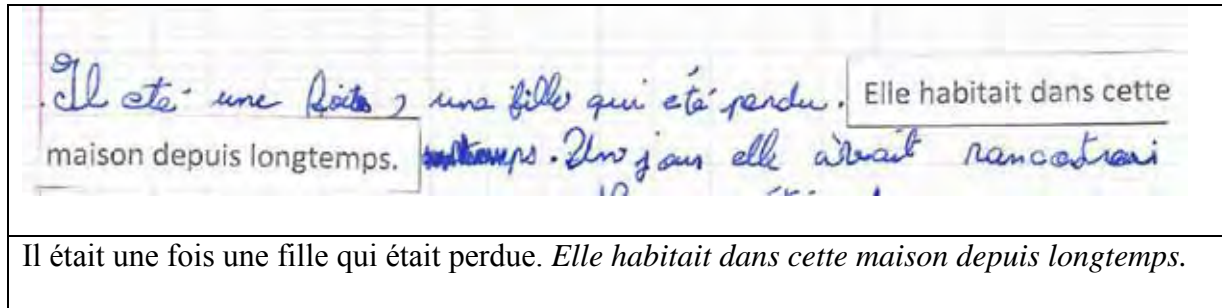 Il eté une foits, une fille qui eté perdu. Elle habitait dans cette
maison depuis longtemps. Un jour elle avait rancontrai
Il était une fois une fille qui était perdue. Elle habitait dans cette maison depuis longtemps.